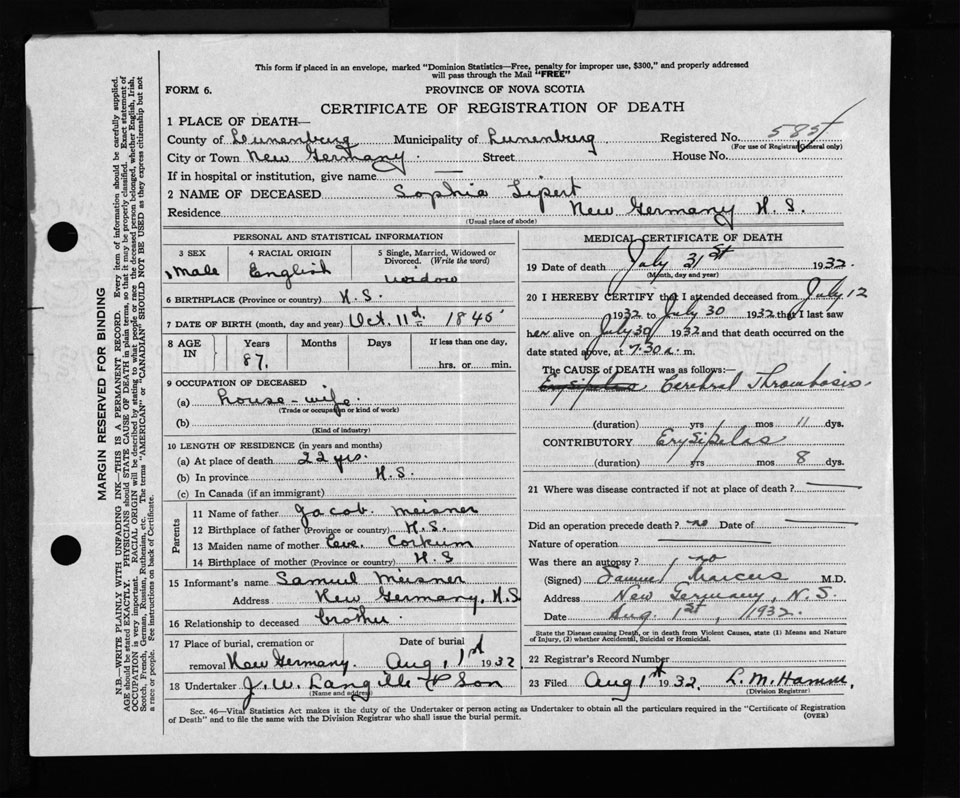 This form if placed in an envelope, marked "Dominion Statistics—Free, penalty for improper use, $300," and properly addressed
will pass through the Mail "FREE"
FORM 6. PROVINCE OF NOVA SCOTIA
CERTIFICATE OF REGISTRATION OF DEATH
1 PLACE OF DEATH—
County of Lunenburg Municipality of Lunenburg Registered No. 585
(For use of Registrar General only)
City or Town New Germany. Street House No.
If in hospital or institution, give name —
2 NAME OF DECEASED Sophia Lipert
Residence New Germany N.S.
(Usual place of abode)
PERSONAL AND STATISTICAL INFORMATION
3 SEX 4 RACIAL ORIGIN 5 Single, Married, Widowed or
Divorced. (Write the word)
Male English widow
6 BIRTHPLACE (Province or country) N.S.
7 DATE OF BIRTH (month, day and year) Oct. 11th 1845
8 AGE IN Years Months Days If less than one day,
87. hrs. or min.
9 OCCUPATION OF DECEASED
(a) house-wife.
(Trade or occupation or kind of work)
(b)
(Kind of industry)
10 LENGTH OF RESIDENCE (in years and months)
(a) At place of death 22 yrs.
(b) In province N.S.
(c) In Canada (if an immigrant)
Parents
11 Name of father Jacob. Meisner
12 Birthplace of father (Province or country) N.S.
13 Maiden name of mother Eve. Corkum
14 Birthplace of mother (Province or country) N.S
15 Informant's name Samuel Meisner
Address New Germany, N.S
16 Relationship to deceased brother.
17 Place of burial, cremation or Date of burial
removal New Germany. Aug, 1st 1932
18 Undertaker J. W. Langille & Son
(Name and address)
MEDICAL CERTIFICATE OF DEATH
19 Date of death July 31st 1932.
(Month, day and year)
20 I HEREBY CERTIFY that I attended deceased from July 12
1932 to July 30 1932 that I last saw
her alive on July 30 1932 and that death occurred on the
date stated above, at 7.30 a. m.
The CAUSE of DEATH was as follows:—
Erysipelas Cerebral Thrombosis.
(duration) yrs mos 11 dys.
CONTRIBUTORY Erysipelas
(duration) yrs mos 8 dys.
21 Where was disease contracted if not at place of death? —
Did an operation precede death? no Date of —
Nature of operation —
Was there an autopsy? no
(Signed) Samuel Marcus M.D.
Address New Germany, N.S.
Date Aug 1st, 1932.
State the Disease causing Death, or in death from Violent Causes, state (1) Means and Nature
of Injury, (2) whether Accidental, Suicidal or Homicidal.
22 Registrar's Record Number
23 Filed Aug 1st 1932. L. M. Hamm,
(Division Registrar)
Sec. 46—Vital Statistics Act makes it the duty of the Undertaker or person acting as Undertaker to obtain all the particulars required in the "Certificate of Registration
of Death" and to file the same with the Division Registrar who shall issue the burial permit. (OVER)
MARGIN RESERVED FOR BINDING
N.B.—WRITE PLAINLY WITH UNFADING INK—THIS IS A PERMANENT RECORD. Every item of information should be carefully supplied.
AGE should be stated EXACTLY. PHYSICIANS should STATE CAUSE OF DEATH in plain terms, so that it may be properly classified. Exact statement of
OCCUPATION is very important. RACIAL ORIGIN will be described by stating to what people or race the deceased person belonged, whether English, Irish,
Scotch, French, German, Russian, Ruthenian, etc. The terms "AMERICAN" or "CANADIAN" SHOULD NOT BE USED as they express citizenship but not
a race or people. See instructions on back of Certificate.